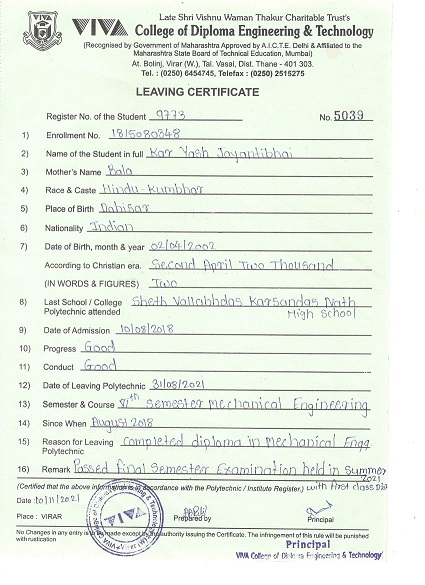 Late Shri Vishnu Waman Thakur Charitable Trust's
VIVA College of Diploma Engineering & Technology
(Recognised by Government of Maharashtra Approved by A.I.C.T.E. Delhi & Affiliated to the
Maharashtra State Board of Technical Education, Mumbai)
At. Bolinj, Virar (W.), Tal. Vasai, Dist. Thane - 401 303.
Tel. : (0250) 6454745, Telefax : (0250) 2515275
LEAVING CERTIFICATE
Register No. of the Student 9773 No. 5039
1) Enrollment No. 1815080348
2) Name of the Student in full Kar Yash Jayantibhai
3) Mother's Name Bala
4) Race & Caste Hindu-Kumbhar
5) Place of Birth Dahisar
6) Nationality Indian
7) Date of Birth, month & year 02/04/2002
According to Christian era. Second April Two Thousand
(IN WORDS & FIGURES) Two
8) Last School / College Sheth Vallabhdas Karsandas Nath
Polytechnic attended High School
9) Date of Admission 10/08/2018
10) Progress Good
11) Conduct Good
12) Date of Leaving Polytechnic 31/08/2021
13) Semester & Course VIth Semester Mechanical Engineering
14) Since When August 2018
15) Reason for Leaving Completed diploma in Mechanical Engg
Polytechnic
16) Remark Passed Final Semester Examination held in Summer
2021
(Certified that the above information is in accordance with the Polytechnic / Institute Register.) with First Class Dist
Date :10/11/2021
Place : VIRAR Prepared by Principal
No Changes in any entry is to be made except by authority issuing the Certificate. The infringement of this rule will be punished
with rustication
Principal
VIVA College of Diploma Engineering & Technology